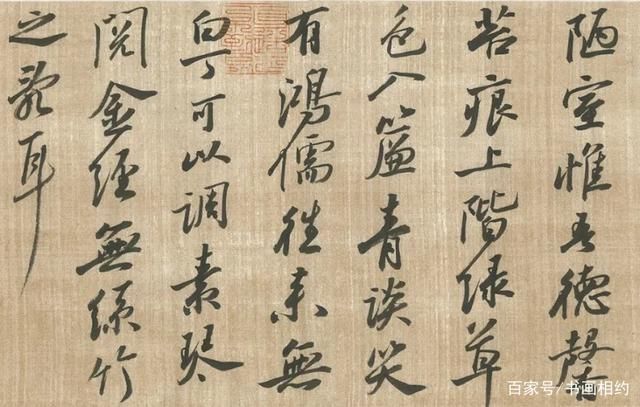 陋室惟吾德馨
苔痕上階緑草
色入簾青談笑
有鴻儒往来無
白丁可以調素琴
閲金經無絲竹
之亂耳
百家号/书画相约